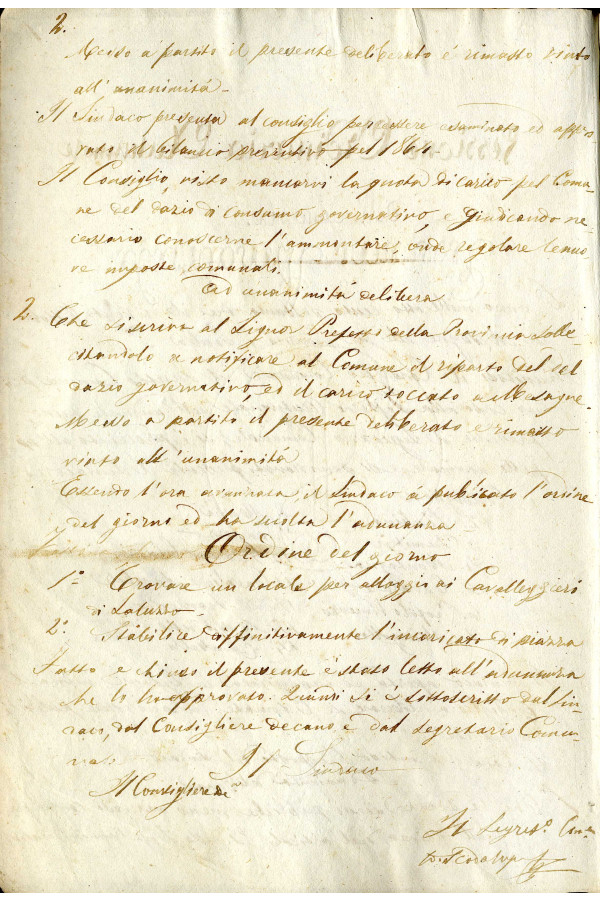 2.
Messo a partito il presente deliberato é rimasto vinto
all'unanimitá.
Il Sindaco presenta al consiglio per essere esaminato ed appro
vato il bilancio preventivo pel 1864
Il Consiglio, visto mancarvi la quota di carico pel Comu
ne del dazio di consumo governativo, e giudicando ne
cessario conoscerne l'ammontare, onde regolare le nuo
ve imposte comunali.
Ad unanimitá delibera
2. Che si scriva al Signor Prefetto della Provincia solle
citandolo a notificare al Comune il riparto del del
dazio governativo, ed il carico toccato a Mesagne.
Messo a partito il presente deliberato e rimasto
vinto all'unanimitá
Essendo l'ora avanzata, il Sindaco á publicato l'ordine
del giorno ed ha sciolta l'adunanza
Ordine del giorno
1º Trovare un locale per alloggio ai Cavalleggieri
di Saluzzo.
2º Stabilire diffinitivamente l'incaricato di piazza
Fatto e chiuso il presente é stato letto all'adunanza
che lo ha approvato. Quindi si é sottoscritto dal Sin
daco, dal Consigliere decano, e dal segretario Comu
nale
Il Sindaco
Il Consigliere
Il Segret.º